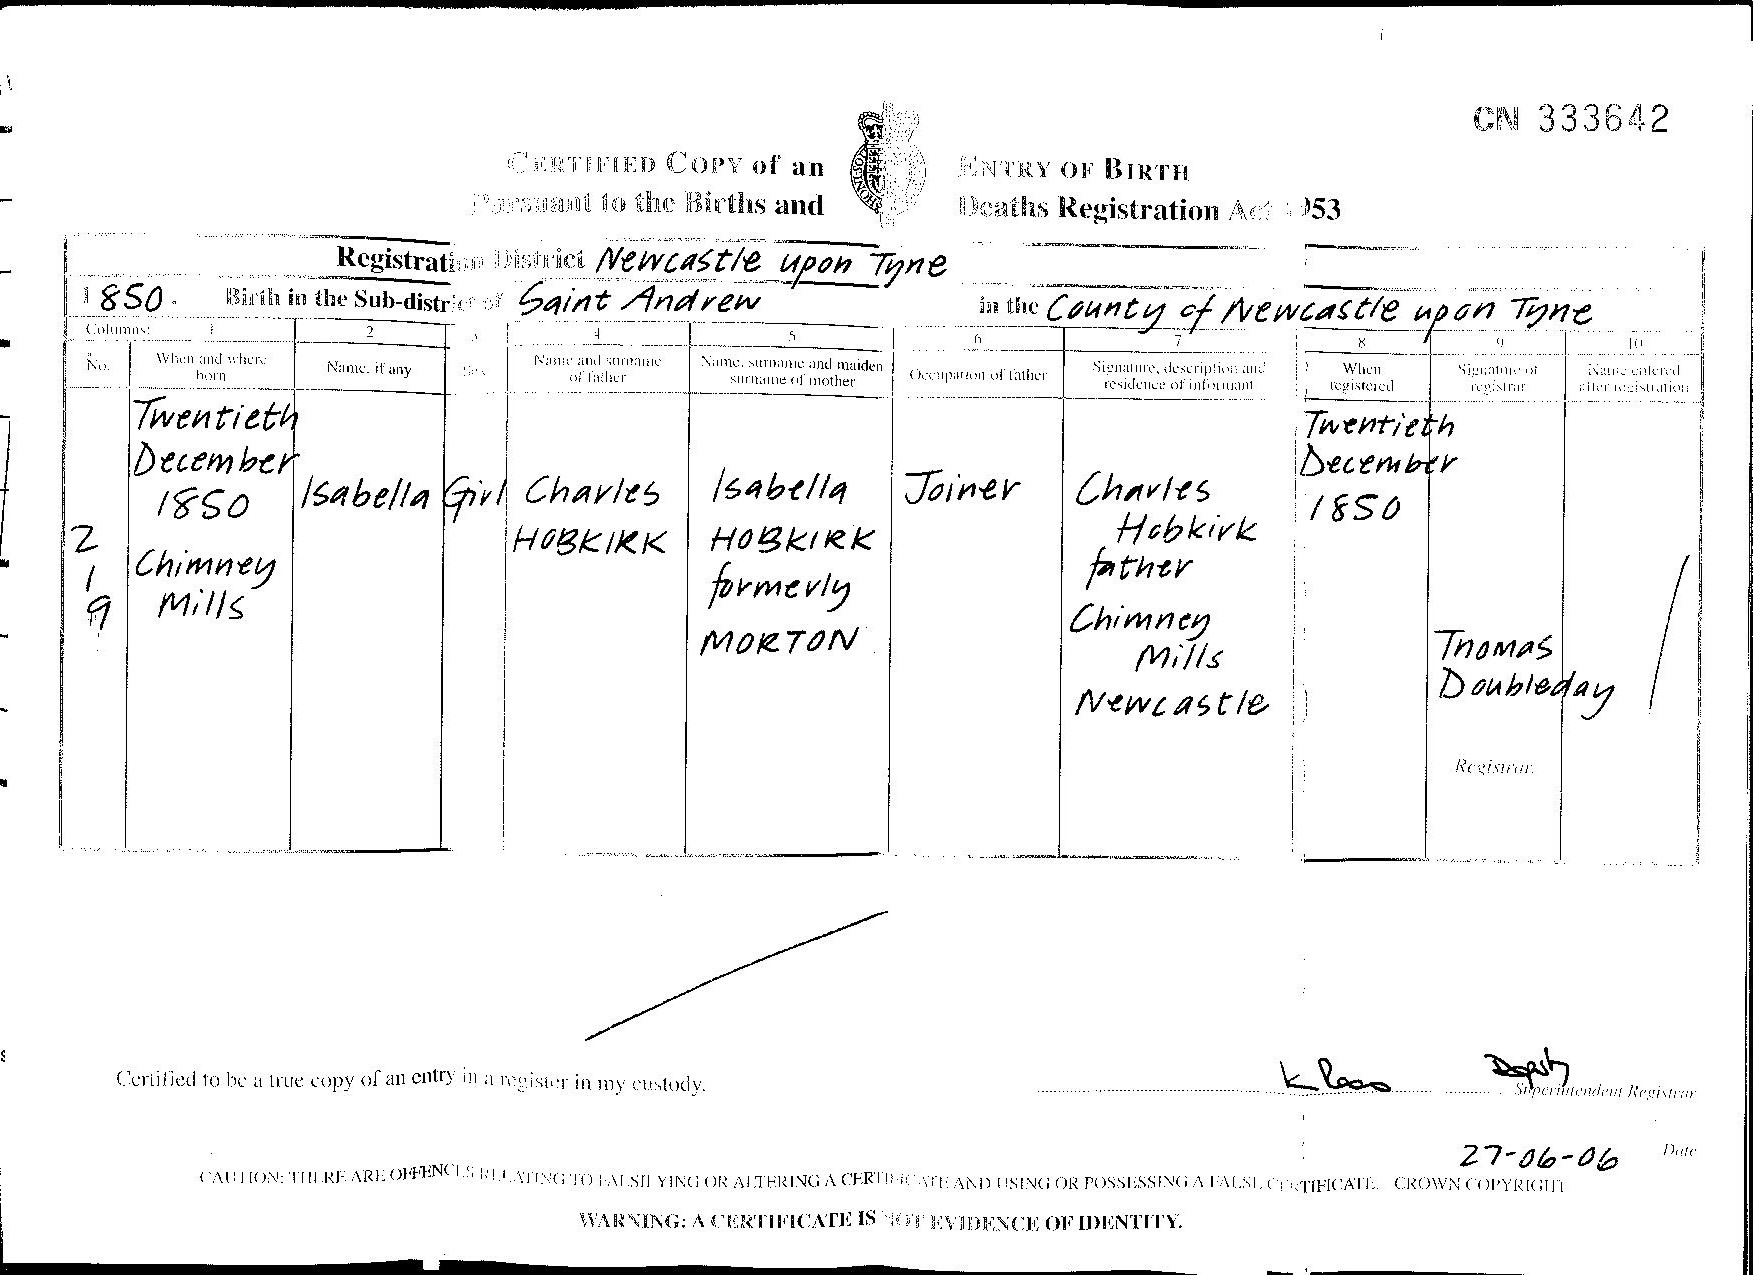 CN 333642
CERTIFIED COPY of an ENTRY OF BIRTH
Pursuant to the Births and Deaths Registration Act 1953
Registration District Newcastle upon Tyne
1850. Birth in the Sub-district of Saint Andrew in the County of Newcastle upon Tyne
Columns: 1 2 3 4 5 6 7 8 9 10
No. When and where born Name, if any Sex Name and surname of father Name, surname and maiden surname of mother Occupation of father Signature, description and residence of informant When registered Signature of registrar Name entered after registration
219
Twentieth
December
1850
Chimney
Mills
Isabella
Girl
Charles
HOBKIRK
Isabella
HOBKIRK
formerly
MORTON
Joiner
Charles
Hobkirk
father
Chimney
Mills
Newcastle
Twentieth
December
1850
Thomas
Doubleday
Registrar.
Certified to be a true copy of an entry in a register in my custody.
Deputy
Superintendent Registrar
27-06-06 Date
CAUTION: THERE ARE OFFENCES RELATING TO FALSIFYING OR ALTERING A CERTIFICATE AND USING OR POSSESSING A FALSE CERTIFICATE. CROWN COPYRIGHT
WARNING: A CERTIFICATE IS NOT EVIDENCE OF IDENTITY.